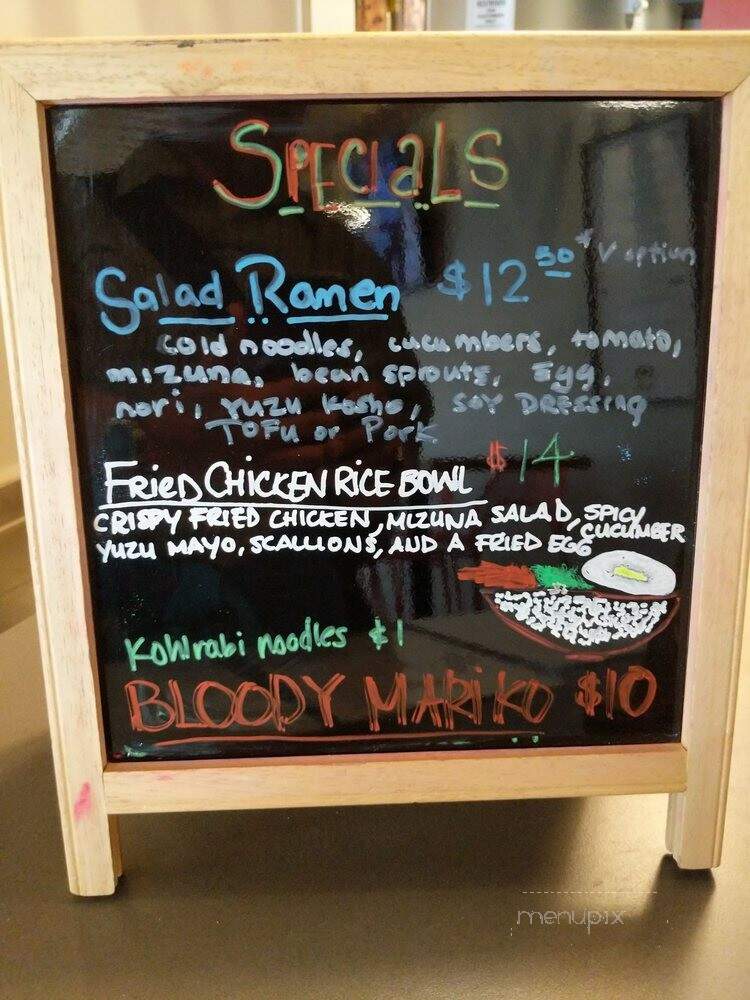 SPECIALS
Salad Ramen $12 50 * V option
cold noodles, cucumbers, tomato,
mizuna, bean sprouts, Egg,
nori, YUZU Kosho, SOY DRESSING
TOFU or Pork
FRIED CHICKEN RICE BOWL $14
CRISPY FRIED CHICKEN, MIZUNA SALAD, SPICY CUCUMBER
YUZU MAYO, SCALLIONS, AND A FRIED EGG
Kohlrabi noodles $1
BLOODY MARIKO $10
menupix